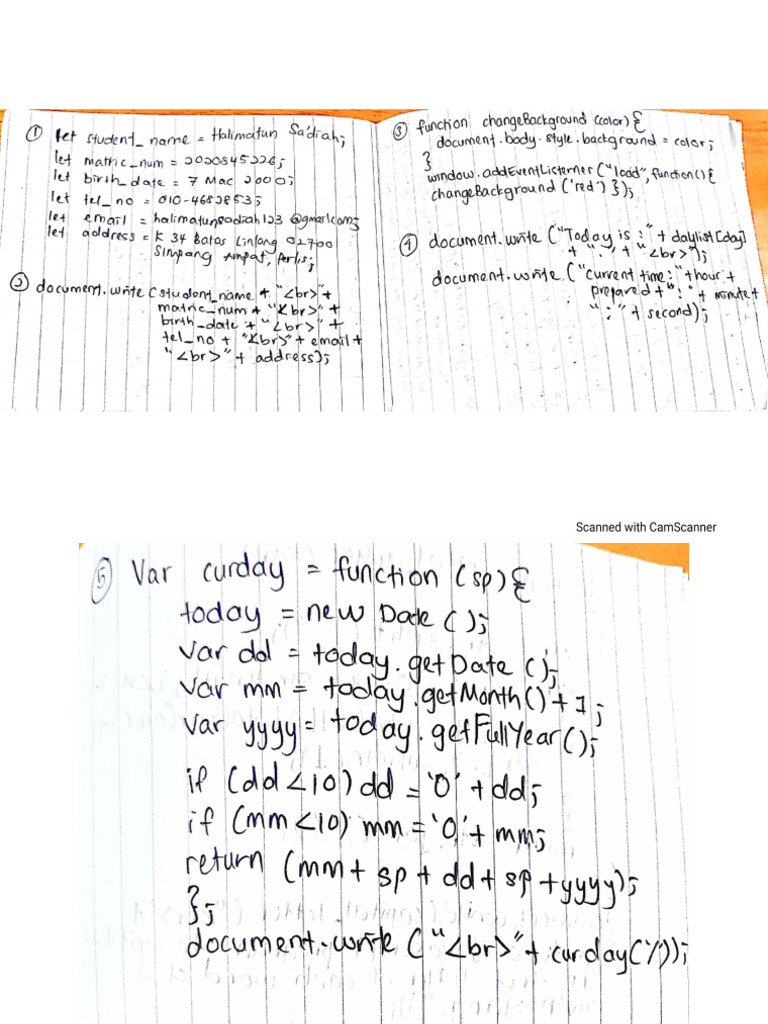 ① let student_name = Halimatun Sa'diah;
let matric_num = 202084532
let birth_date = 7 Mac 2000;
let tel_no = 010-46528535
let email = halimatunsadiah123@gmail.com;
let address = K 34 Batas Linjong 02700
Simpang Ampat, Perlis;
② document.write (student_name + "<br>" +
matric_num + "<br>" +
birth_date + "<br>" +
tel_no + "<br>" + email +
"<br>" + address);
③ function changeBackground (color) {
document.body.style.background = color;
}
window.addEventListerner ("load", function() {
changeBackground ('red') });
④ document.write ("Today is : " + daylist[day]
+ "." + "<br>");
document.write ("current time : " + hour +
prepared + " : " + minute +
" : " + second);
Scanned with CamScanner
⑤ Var curday = function (sp) {
today = new Date ();
Var dd = today.getDate ();
var mm = today.getMonth() + 1;
var yyyy = today.getFullYear();
if (dd<10) dd = '0' + dd;
if (mm<10) mm = '0' + mm;
return (mm + sp + dd + sp + yyyy);
};
document.write ("<br>" + curday('/'));